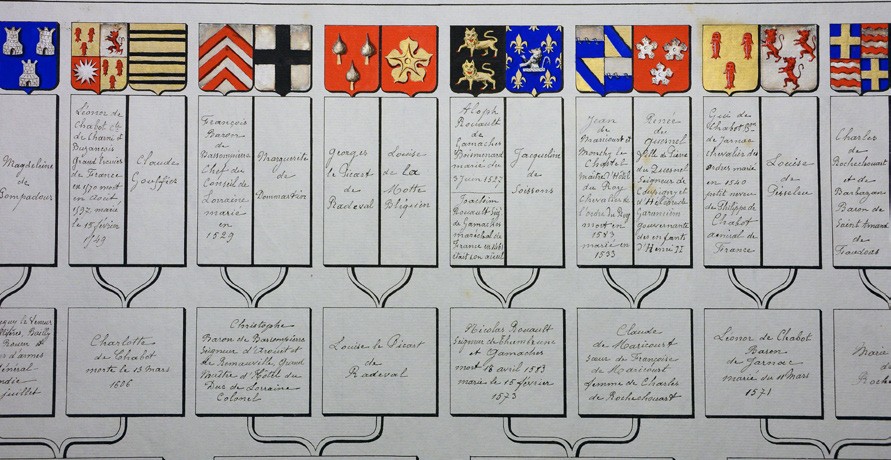 Magdeleine
de
Pompadour
Léonor de
Chabot cte
de Charni et
Buzançois
Grand Ecuyer
de France
en 1570 mort
en Aout
marié
le 15 février
1549
Claude
Gouffier
François
Baron
de
Bassompierre
Chef du
Conseil de
Lorraine
marié
en
1529
Marguerite
de
Dommartin
Georges
le Picart
de
Radeval
Louise
de la
Motte
Bléquin
Aloph
Rouault
de
Gamaches
marié du
3 juin 1527
Joachim
Rouault Sgr
de Gamaches
maréchal de
France en 1461
était son aieul
Jacqueline
de
Soissons
Jean
de
Maricourt et
Monchy le
Chastel
Maître d'Hôtel
du Roy
Chevalier de
l'ordre du Roy
mort en
1583
marié en
1533
Renée
du
Quesnel
fille de
du Quesnel
Seigneur de
Coupigny et
d'
gouvernante
des enfants
d'Henri II
Gui de
Chabot Bon
de Jarnac
chevalier des
ordres marié
en 1540
petit neveu
de Philippe de
Chabot
amiral de
France
Louise
de
Pisseleu
Charles
de
Rochechouart
et de
Barbazan
Baron de
Saint Amand
de
Faudoas
le Veneur
Bailly
Rouen et
d'armes
Général
juillet
Charlotte
de Chabot
morte le 15 mars
1606
Christophe
Baron de Bassompierre
Seigneur d'Arouët et
de Remauville, Grand
Maître d'Hôtel du
Duc de Lorraine
Colonel
Louise le Picart
de
Radeval
Nicolas Rouault
Seigneur de Thiembrune
et Gamaches
mort 18 avril 1583
marié le 15 février
1573
Claude
de Maricourt
sœur de Françoise
de Maricourt
femme de Charles
de Rochechouart
Léonor de Chabot
Baron
de Jarnac
marié du 11 Mars
1571
Marie
de
Roche